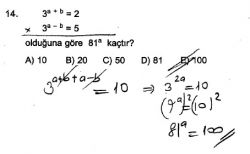 14. 3ᵃ ⁺ ᵇ = 2
x 3ᵃ ⁻ ᵇ = 5
olduğuna göre 81ᵃ kaçtır?
A) 10 B) 20 C) 50 D) 81 E) 100
3ᵃ⁺ᵇ⁺ᵃ⁻ᵇ = 10 ⇒ 3²ᵃ = 10
(9ᵃ)² = (10)²
81ᵃ = 100